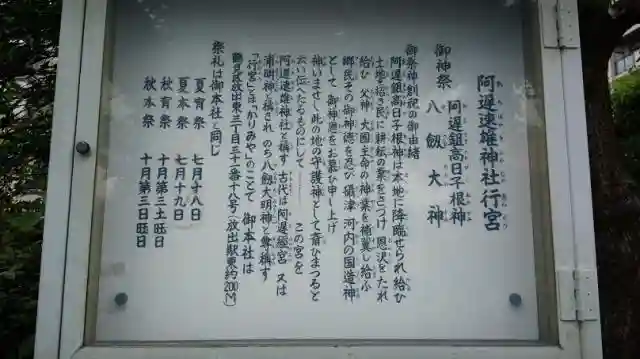 阿遅速雄神社行宮
御祭神
阿遅鉏高日子根神
八劔大神
御祭神創祀の御由緒
阿遅鉏高日子根神は本地に降臨せられ給ひ
土地を拓き民に耕耘の業をさづけ 恩沢をたれ
給ひ 父神 大国主命の神業を補翼し給ふ
郷民その御神徳を忍び 摂津 河内の国造神
として 御神徳をお慕ひ申し上げ
神いませし此の地の守護神として斎ひまつると
云い伝へたるものにして…… この宮を
阿遅速雄神社と稱す 古代は阿遅經宮 又は
浦明神と稱され のち八劔大明神と尊稱す
「行宮」とは「かりみや」のことで 御本社は
鶴見区放出東三丁目三十一番十八号(放出駅東約200M)
祭礼は御本社と同じ
夏宵祭 七月十八日
夏本祭 七月十九日
秋宵祭 十月第三土旺日
秋本祭 十月第三日旺日